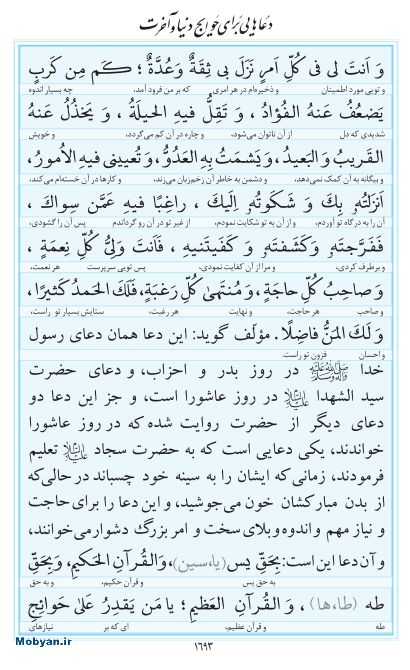 دعاهایی برای حوایج دنیا و آخرت
وَ اَنتَ لی فی کُلِّ اَمرٍ نَزَلَ بی ثِقَةٌ وَعُدَّةٌ ؛ کَم مِن کَربٍ
و تویی مورد اطمینان و ذخیره‌ام در هر امری که بر من فرود آمد، چه بسیار اندوه
یَضعُفُ عَنهُ الفُؤادُ ، وَ تَقِلُّ فیهِ الحیلَةُ ، وَ یَخذُلُ عَنهُ
شدیدی که دل از آن ناتوان می‌شود، و چاره در آن کم می‌گردد، و خویش
القَریبُ وَالبَعیدُ ، وَیَشمَتُ بِهِ العَدُوُّ ، وَ تُعیینی فیهِ الاُمورُ،
و بیگانه به آن کمک نمی‌دهد، و دشمن به خاطر آن زخم‌زبان می‌زند، و کارها در آن خسته‌ام می‌کند،
اَنزَلتُهُ بِكَ وَ شَکَوتُهُ اِلَیكَ ، راغِبًا فیهِ عَمَّن سِواكَ ،
آن را به درگاه تو آوردم، و از آن به تو شکایت نمودم، از غیر تو در آن رو گرداندم پس آن را گشودی،
فَفَرَّجتَهُ وَکَشَفتَهُ وَ کَفَیتَنیهِ ، فَاَنتَ وَلِیُّ کُلِّ نِعمَةٍ ،
و برطرف کردی، و مرا از آن کفایت نمودی، پس تویی سرپرست هر نعمت،
وَ صاحِبُ کُلِّ حاجَةٍ ، وَ مُنتَهیٰ کُلِّ رَغبَةٍ، فَلَكَ الحَمدُ کَثیرًا ،
و صاحب هر حاجت، و نهایت هر رغبت، ستایش بسیار تو راست،
وَ لَكَ المَنُّ فاضِلًا . مؤلّف گوید: این دعا همان دعای رسول
و احسان فزون تو راست.
خدا ﷺ در روز بدر و احزاب، و دعای حضرت
سید الشهدا علیه‌السلام در روز عاشورا است، و جز این دعا دو
دعای دیگر از حضرت روایت شده که در روز عاشورا
خواندند، یکی دعایی است که به حضرت سجاد علیه‌السلام تعلیم
فرمودند، زمانی که ایشان را به سینه خود چسباند در حالی‌که
از بدن مبارکشان خون می‌جوشید، و این دعا را برای حاجت
و نیاز مهم و اندوه و بلای سخت و امر بزرگ دشوار می‌خوانند،
و آن دعا این است: بِحَقِّ یس (یا،سین)، وَالقُرآنِ الحَکیمِ، وَبِحَقِّ
به حق یس و قرآن حکیم، و به حق
طه (طا،ها) ، وَ القُرآنِ العَظیمِ؛ یا مَن یَقدِرُ عَلیٰ حَوائِجِ
طه و قرآن عظیم، ای که بر نیازهای
۱۶۹۳
Mobyan.ir